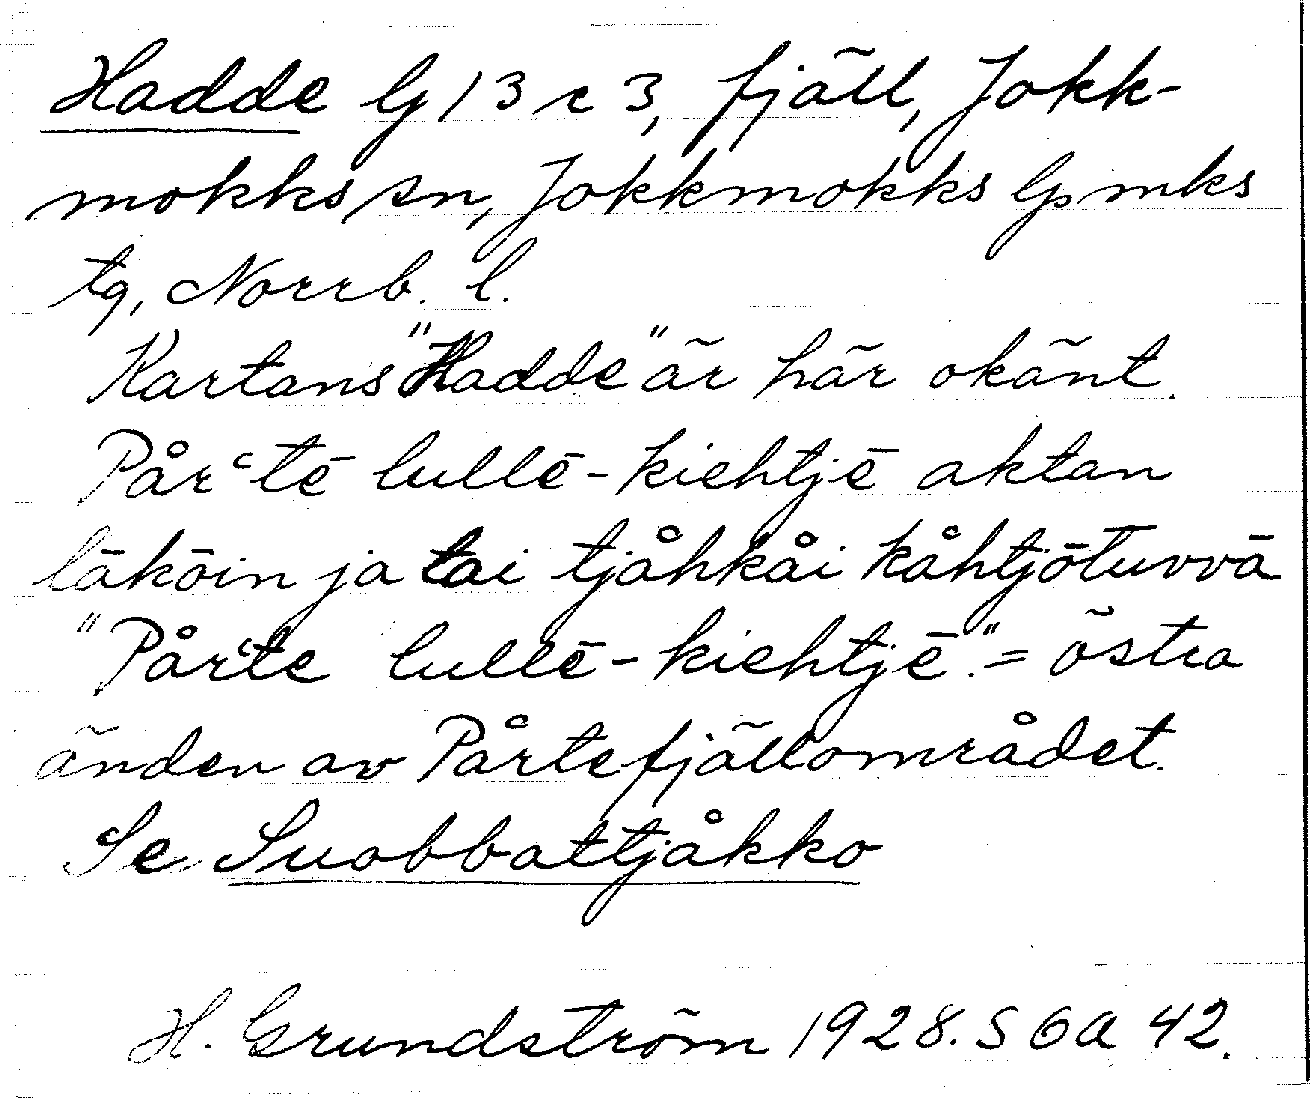 Hadde G 13 c 3, fjäll, Jokk-
mokks sn, Jokkmokks lpmks
tg, Norrb. l.
Kartans "Hadde" är här okänt.
Pår‘tē lullē-kiehtjē aktan
lākōin ja tai tjåhkåi kåhtjōtuvvā
"Pår‘te lullē-kiehtjē". = östra
änden av Pårtefjällområdet.
Se Suobbattjåkko
H. Grundström 1928. S 6a 42.